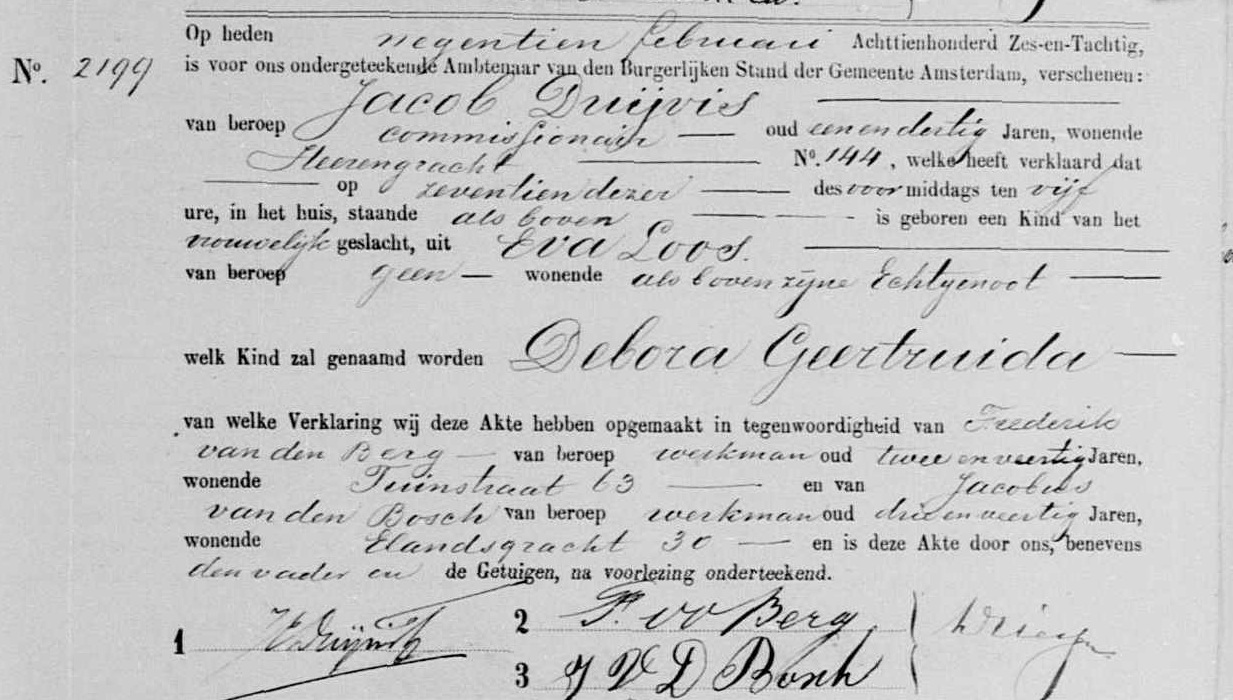 Op heden negentien februari Achttienhonderd Zes-en-Tachtig,
No. 2199 is voor ons ondergeteekende Ambtenaar van den Burgerlijken Stand der Gemeente Amsterdam, verschenen:
Jacob Duijvis
van beroep commissionair oud een en dertig Jaren, wonende
Heerengracht No. 144, welke heeft verklaard dat
op zeventien dezer des voormiddags ten vijf
ure, in het huis, staande als boven is geboren een Kind van het
vrouwelijk geslacht, uit Eva Loos.
van beroep geen wonende als boven zijne Echtgenoot
welk Kind zal genaamd worden Debora Geertruida
van welke Verklaring wij deze Akte hebben opgemaakt in tegenwoordigheid van Frederik
van den Berg van beroep werkman oud twee en veertig Jaren,
wonende Tuinstraat 63 en van Jacobus
van den Bosch van beroep werkman oud drie en veertig Jaren,
wonende Elandsgracht 30 en is deze Akte door ons, benevens
den vader en de Getuigen, na voorlezing onderteekend.
1 Duijvis 2 F. vd Berg
3 J V D Bosch